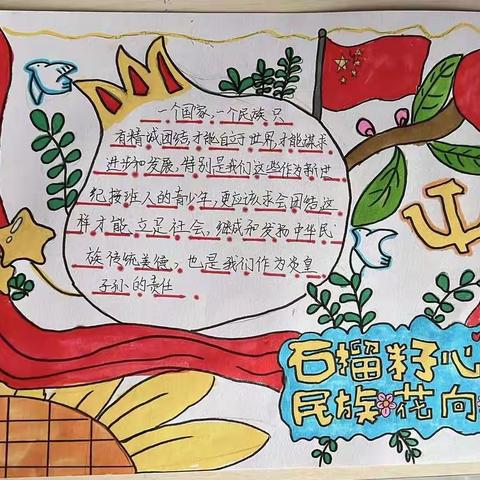 一个国家,一个民族只
有精诚团结,才能自立于世界,才能谋求
进步和发展,特别是我们这些作为新世
纪接班人的青少年,更应该求会团结,这
样才能立足社会,继成和发扬中华民
族传统美德,也是我们作为炎皇
子孙的责任
石榴籽心
民族花向